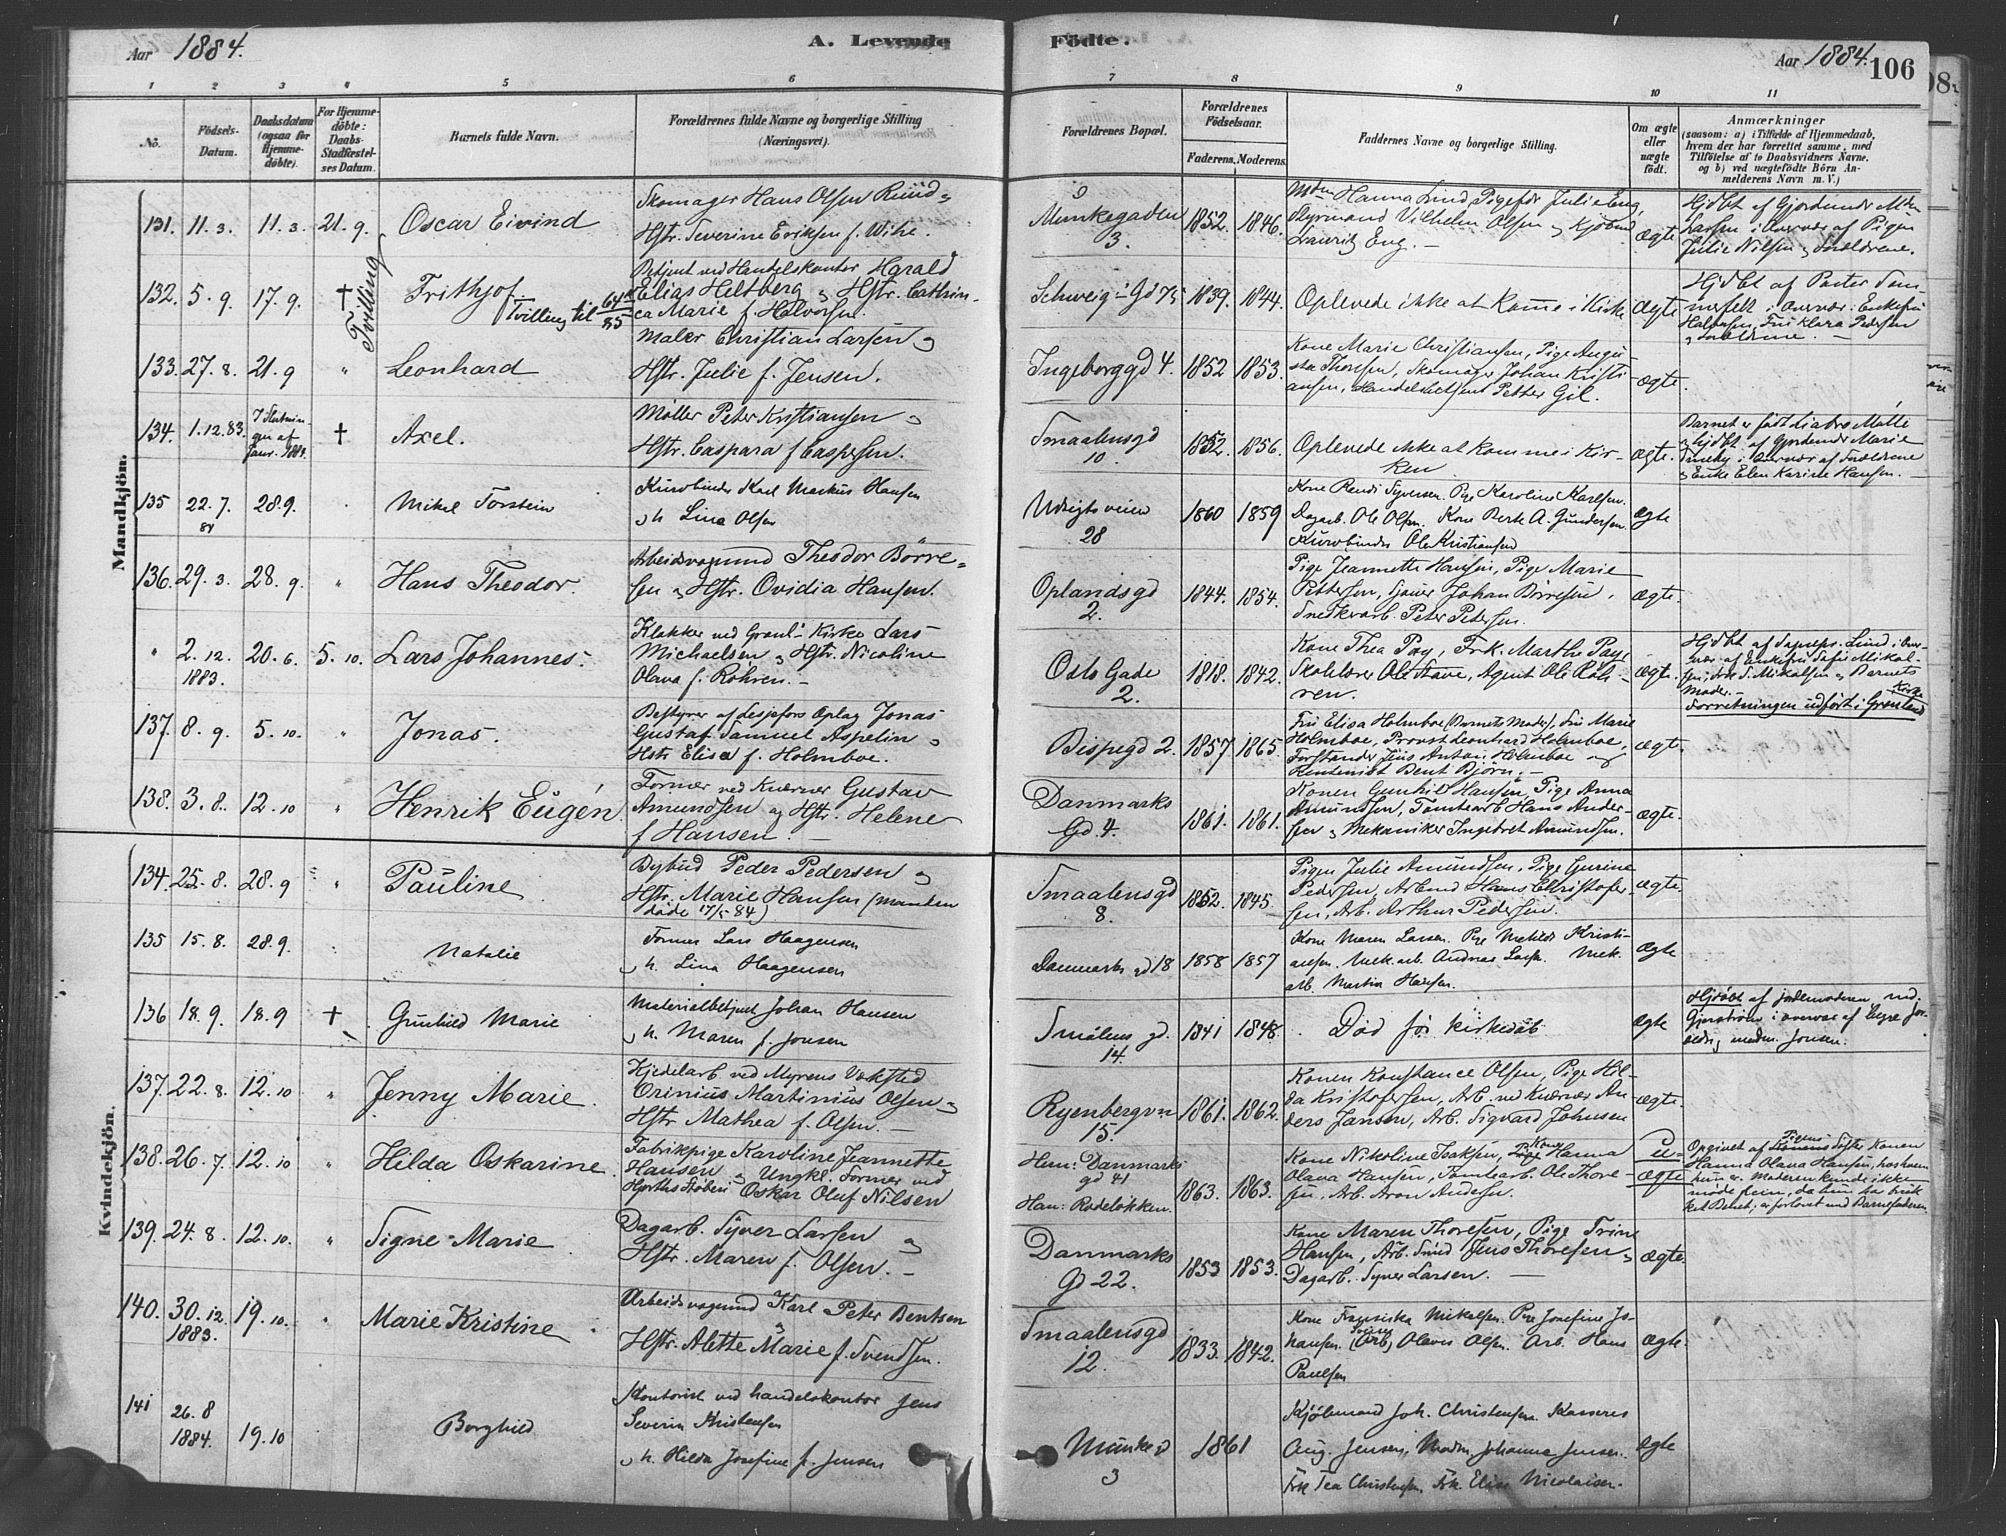 Aar 1884.
A. Levende Fødte.
Aar 1884.
106
1 2 3 4 5 6 7 8 9 10 11
No.
Födsels-Datum.
Daabsdatum (ogsaa for Hjemmedöbte).
For Hjemmedöbte: Daabs-Stadfæstelses Datum.
Barnets fulde Navn.
Forældrenes fulde Navne og borgerlige Stilling (Næringsvei).
Forældrenes Bopæl.
Forældrenes Födselsaar.
Faderens. Moderens.
Faddernes Navne og borgerlige Stilling.
Om ægte eller uægte födt.
Anmærkninger
(saasom: a) i Tilfælde af Hjemmedaab, hvem der har forrettet samme, med Tilföielse af to Daabsvidners Navne, og b) ved uægtefödte Börn Anmelderens Navn m. V.)
Mandkjön.
131. 11.3. 11.3. 21.9. Oscar Eivind
Skomager Hans Olsen Ruud
Hstr. Severine Eriksen f. Wihe.
Munkegaden 3. 1852. 1846.
Hanna Lind, Julie Eng,
Styrmand Vilhelm Olsen
Lauritz Eng. ægte
Julie Nilsen Forældrene.
132. 5.9. 17.9. † Frithjof
Tvilling
Tvilling til 64/85
Betjent ved Handelskontor Harald
Elias Heltberg Hstr. Cathrin-
ca Marie f. Halvorsen.
Schweig. Gd 75 1839. 1844. Oplevede ikke at komme i Kirke Ægte
Hjdbt af Pastor
Fru Klara Pedersen
133. 27.8. 21.9 " Leonhard
Maler Christian Larsen
Hstr. Julie f. Jensen.
Ingeborggd 4. 1852 1853.
Kone Marie Christiansen, Pige Augu-
sta Thorsen, Skomager Johan Kristi-
ansen, Petter Gil. ægte.
134. 1.12.83. † Axel.
Møller Peter Kristiansen
Hstr. Caspara f Caspersen.
Smaalensgd 10. 1852. 1856. Oplevede ikke at komme i Kir-
ken ægte.
Barnet er født
Hjdbt. af Gjordemor Marie
i Overvær af Forældrene
Enke Elen Karine Hansen.
135 22.7. 84 28.9. Mikal Torstein
Kurvbinder Karl Markus Hansen
h. Lina Olsen
Udsigtsveien 28 1860 1859
Kone Randi Syversen. Pge Karoline Karlsen.
Dagarb. Ole Olsen. Kone Berte A. Gundersen.
Kurvbinder Ole Kristiansen ægte
136. 29.3. 28.9. " Hans Theodor.
Arbeidsvognmd Theodor Börre-
sen Hstr. Ovidia Hansen.
Oplandsgd 2. 1844. 1854.
Pige Jeannette Hansen, Pige Marie
Pettersen, Sjauer Johan Börresen,
Snedkerarb. Peter Petersen. ægte.
" 2.12. 1883. 20.6. 5.10. Lars Johannes.
Klokker ved Grønl. Kirke Lars
Michaelsen Hstr. Nicoline
Olava f. Röhren.
Oslo Gade 2. 1818. 1842.
Kone Thea Pay, Frk. Marthe Pay,
Skolelærer Ole Stave, Agent Ole Röh-
ren. ægte.
Mikalsen Barnets
Moder.
Forretningen udført i Grønland Kirke
137. 8.9. 5.10. " Jonas.
Bestyrer af Lesjøfors Oplag Jonas
Gustaf Samuel Aspelin
Hstr Elisa f. Holmboe.
Bispegd 2. 1857. 1865
Fru Elisa Holmboe (Barnets Moder), Fru Marie
Holmboe, Provst Leonhard Holmboe,
Forstander Jens Anton Holmboe og
Rentenist Bent Björn. ægte.
138. 3.8. 12.10 " Henrik Eugén.
Former ved Kværner Gustav
Amundsen og Hstr. Helene
f Hansen.
Danmarks Gd. 4. 1861. 1861.
Konen Gunhild Hansen, Pige Anna
Amundsen, Tomtearb Hans Ander-
sen Mekaniker Ingebret Amundsen. ægte.
Kvindekjön.
134. 25.8. 28.9 " Pauline
Bybud Peder Pedersen
Hstr. Marie Hansen (manden
døde 17/5 84)
Smaalensgd 8. 1852. 1845.
Pigen Julie Amundsen, Pige Gurine
Pedersen, Arbmd Hans Christofer-
sen, Arb. Arthur Pedersen. ægte.
135 15.8. 28.9. Natalie
Former Lars Haagensen
h. Lina Haagensen
Danmarks gd 18 1858 1857
Kone Maren Larsen. Pge Mathilde Kristi-
ansen. Mek. arb. Andreas Larsen. Mek.
arb. Martin Hansen. Ægte
136 18.9. 18.9 † Gunhild Marie
Materialbetjent Johan Hansen
h. Maren f. Jonsen
Smålens gd. 14. 1841 1848. Död før kirkedåb ægte
Hjdöbt af jordemoderen md.
Gjerström i overvær af begge for-
ældre, madm. Jonsen.
137. 22.8. 12.10 " Jenny Marie.
Kjedelarb. ved Myrens Værksted
Orinius Martinius Olsen
Hstr Mathea f. Olsen.
Ryenbergvn 15. 1861. 1862.
Konen Konstance Olsen, Pige Hil-
da Kristofersen, Arb. ved Kværner An-
ders Jansen, Arb. Sigvard Johnsen ægte.
138. 26.7. 12.10 " Hilda Oskarine.
Fabrikpige Karoline Jeannette
Hansen Ungkl. Former ved
Oskar Oluf Nilsen
Hun: Danmarks gd 41
Han: Rodeløkken. 1863. 1863.
Kone Nikoline Isaksen, Kone Hanna
Olava Hansen, Tomtearb. Ole Thore-
sen, Arb. Aron Andersen. u-ægte
Opgivet af Pigens Søster Konen
Hanna Olava Hansen, hos hvem
hun er. Moderen kunde ikke
møde frem, da hun har bruk-
ket Benet; er forlovet med Barnefaderen.
139. 24.8. 12.10. " Signe Marie
Dagarb. Syver Larsen og
Hstr. Maren f. Olsen.
Danmarks Gd 22. 1853 1853.
Kone Maren Thoresen, Pige Trine
Hansen, Arb. Smed Jens Thoresen
Dagarb. Syver Larsen. ægte.
140. 30.12. 1883. 19.10. " Marie Kristine
Arbeidsvognmd Karl Peter Bentsen
Hstr. Alette Marie f. Svendsen.
Smaalensgd 12. 1833. 1842.
Kone Fransiska Mikalsen. Pge Josefine Jo-
hansen. Olaves Olsen. Arb. Hans
Paulsen ægte.
141 26.8 1884. 19.10 Borghild
Kontorist ved handelskontor Jens
Severin Kristensen
h. Hilda Josefine f. Jensen
Munkegd 3 1861
Kjöbmand Joh. Christensen. Kasserer
Aug. Jensen, Madm. Johanna Jensen.
Frk Tea Christensen, Frk. Elise Nicolaisen. ægte